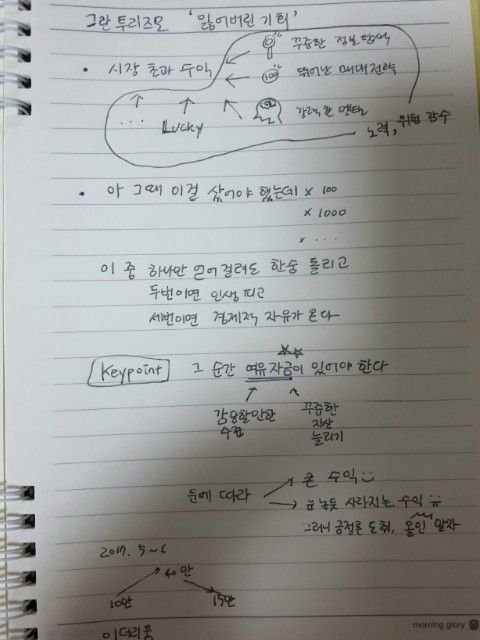 그란 투리즈모 '잃어버린 기회'
꾸준한 정보탐색
• 시장 초과 수익
100
뛰어난 매매전략
...
Lucky
강력한 멘탈
노력, 위험 감수
• 아 그때 이걸 샀어야 했는데! × 100
× 1000
× ...
이 중 하나만 얻어걸려도 한숨 돌리고
두번이면 인생 피고
세번이면 경제적 자유가 온다
Keypoint
그 순간 여유자금이 있어야 한다
감당할만한 수준
꾸준한 자산 늘리기
운에 따라
큰 수익
눈 녹듯 사라지는 수익 ㅠ
그러니 긍정론 도취, 올인 말자
2017. 5~6
40만
10만
15만
이더리움
morning glory